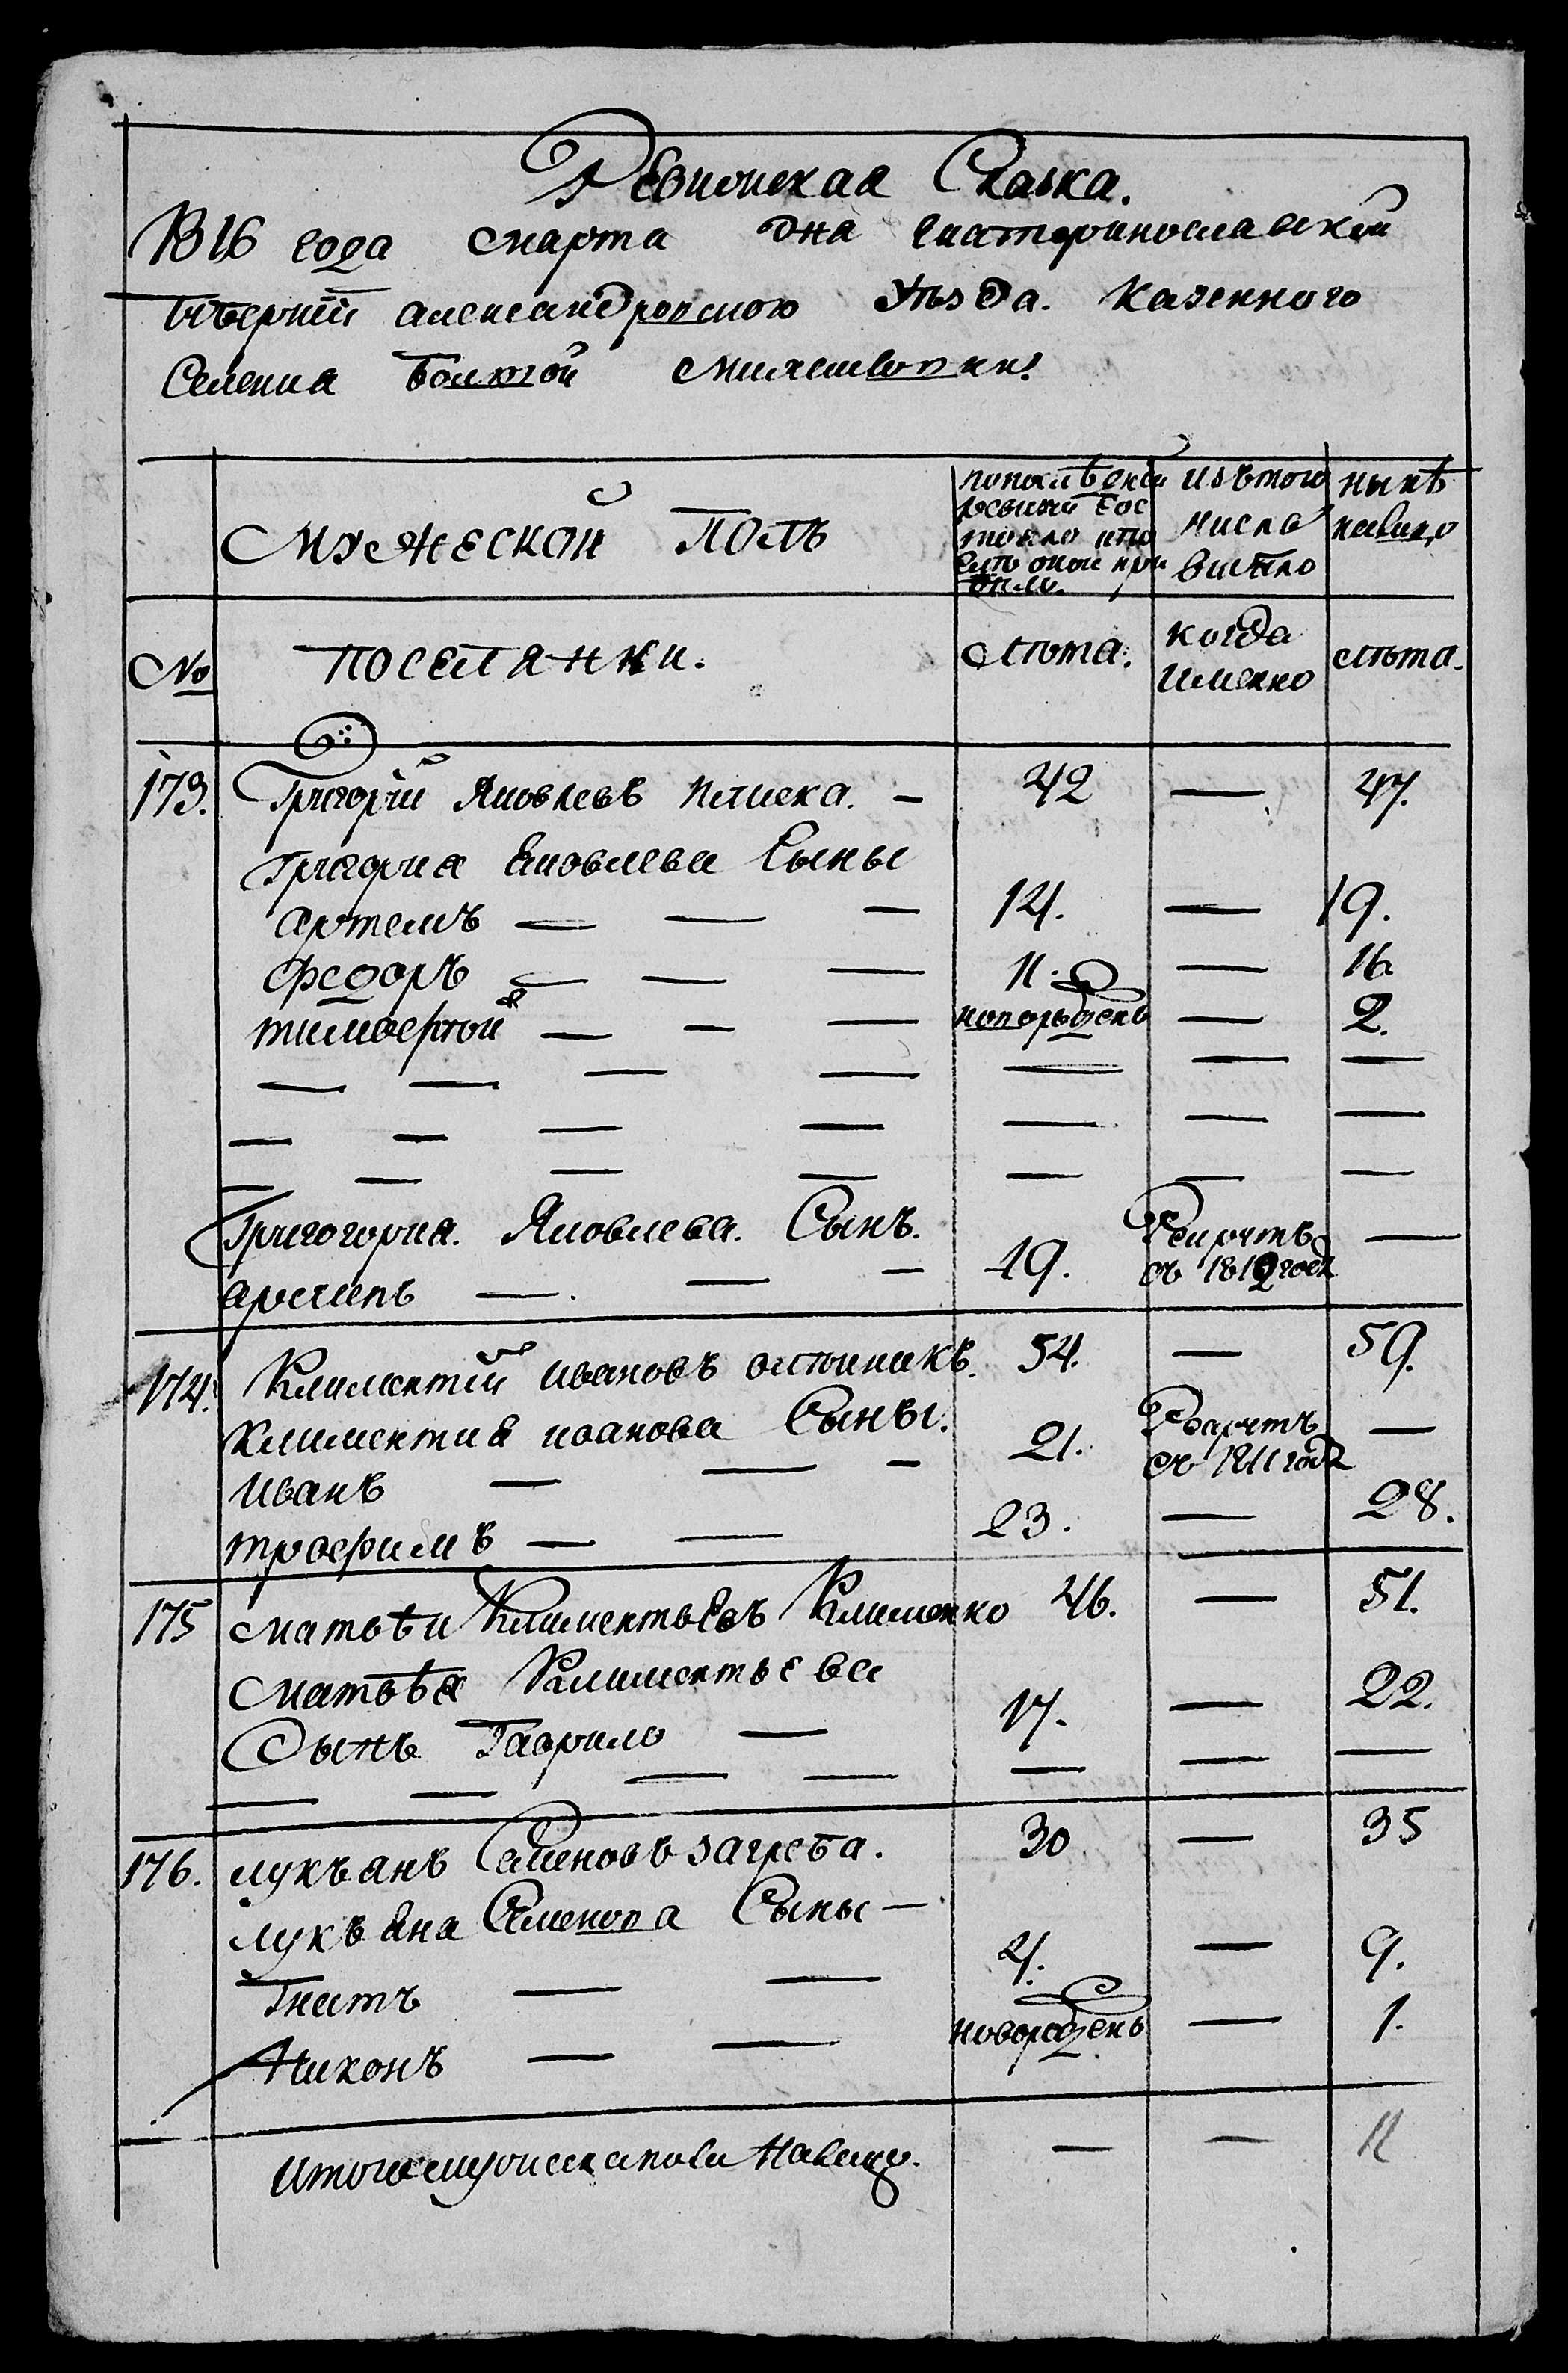 Ревижская Сказка.
1816 года марта дня Екатеринославской
Губернии александровского Уезда. Казенного
Селения Болшой михайловки
МУЖЕСКОЙ ПОЛЪ
по последней
ревизии сос
тояло и по
слѣ оной при
было.
Изъ того
числа
выбыло
нынѣ
налицо
№
ПОСЕЛЯННИ.
Лѣта.
когда
именно
лѣта.
173. Григорій Яковлевъ плиска. — 42 — 47.
Григория Яковлева Сыны
артемъ — — — 14. — 19.
федоръ — — — 11. — 16
тимоефтой — — — новорожденъ — 2.
— — — — — — —
— — — — — — —
— — — — — — —
Григогория. Яковлева. Сынъ.
арсшепъ — — — 19. Рекрутъ съ 1812 года —
174. Климентій ивановъ 54. — 59.
Климентия иванова Сыны.
Иванъ — — — 21. Рекрутъ съ 1811 года —
трофимъ — — 23. — 28.
175 матвѣи Климентьевъ Клименко 46. — 51.
матвѣя Климентьева
Сынъ Гаврило — 17. — 22.
— — — — — — —
176. лукъянъ Семеновъ загреба. 30 — 35
лукъяна Семенова Сыны —
Гнатъ — — 4. — 9.
Никонъ — — новорожденъ — 1.
Итого мужеска пола Налицо. — — 11